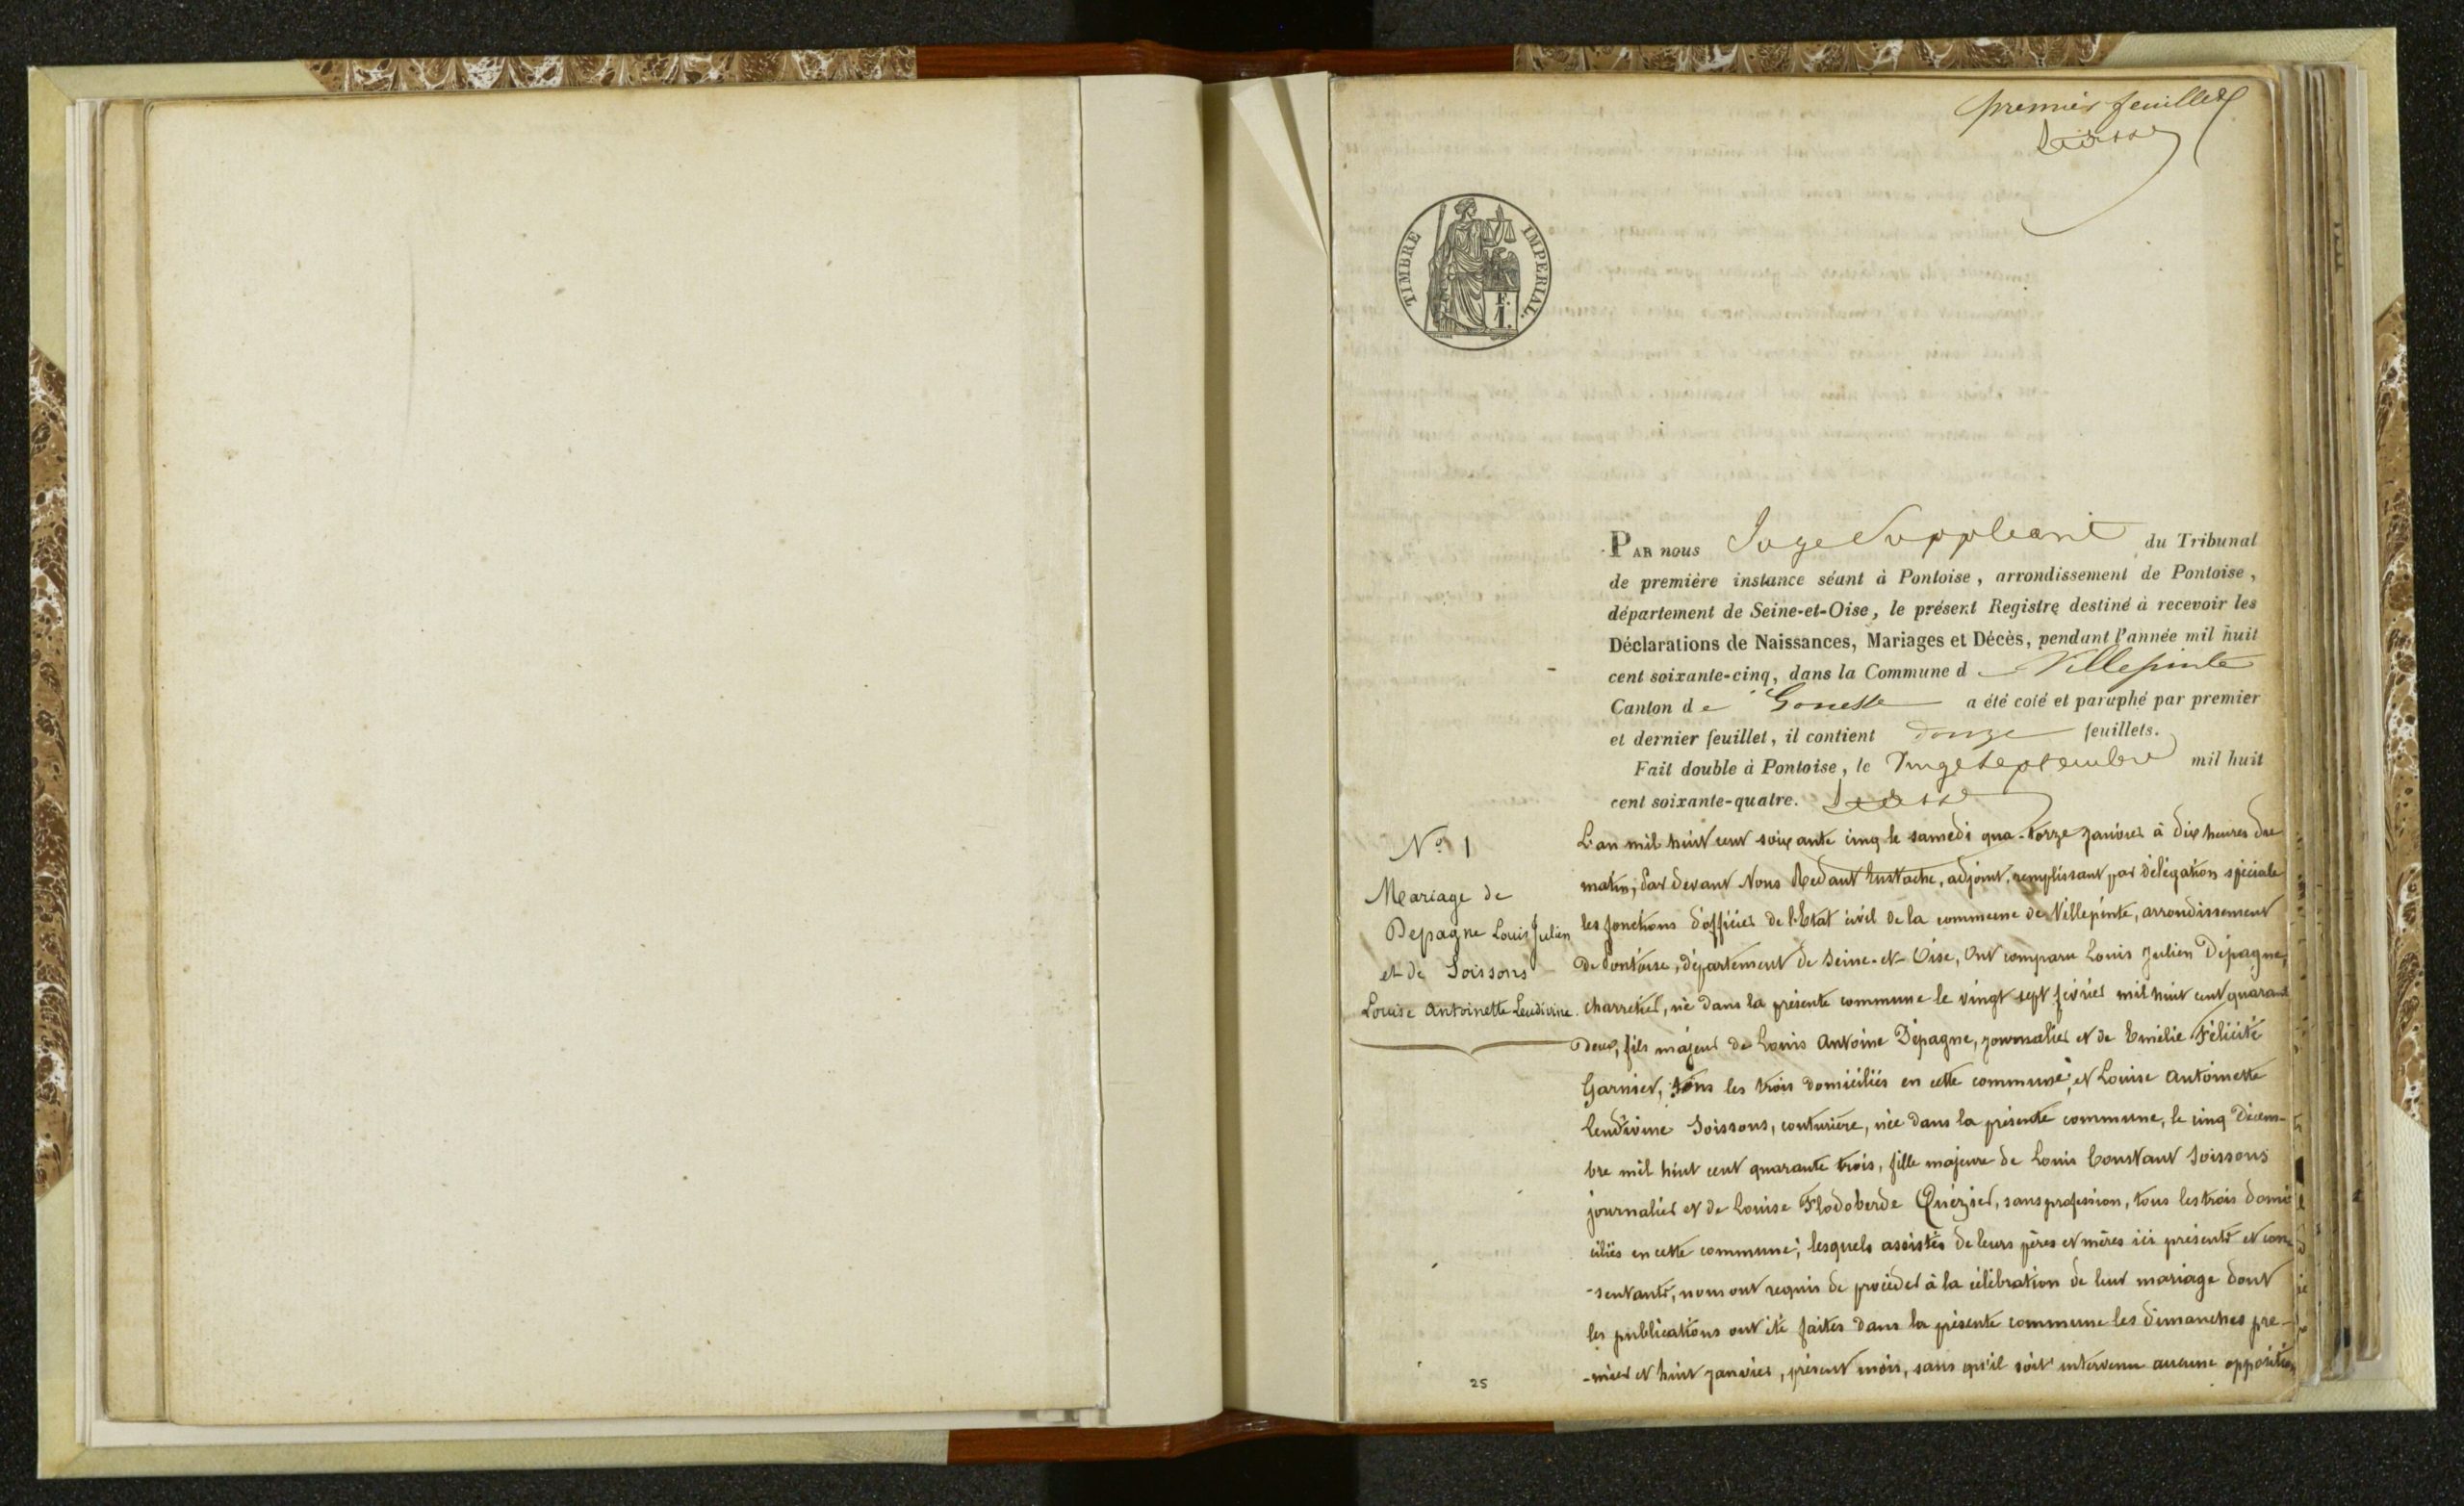 premier feuillet
TIMBRE IMPERIAL.
F.
1.
PAR nous Juge Suppléant du Tribunal
de première instance séant à Pontoise, arrondissement de Pontoise,
département de Seine-et-Oise, le présent Registre destiné à recevoir les
Déclarations de Naissances, Mariages et Décès, pendant l'année mil huit
cent soixante-cinq, dans la Commune d Villepinte
Canton de Gonesse a été coté et paraphé par premier
et dernier feuillet, il contient douze feuillets.
Fait double à Pontoise, le Septembre mil huit
cent soixante-quatre.
N° 1
Mariage de
Depagne Louis Julien
et de Soissons
Louise Antoinette Leudivine.
L'an mil huit cent soixante cinq le samedi quatorze janvier à dix heures du
matin, par devant Nous Eustache, adjoint, remplissant par délégation spéciale
les fonctions d'officier de l'Etat civil de la commune de Villepinte, arrondissement
de Pontoise, département de Seine-et-Oise, Ont comparu Louis Julien Dépagne,
charretier, né dans la présente commune le vingt sept février mil huit cent quarante
deux, fils majeur de Louis Antoine Dépagne, journalier et de Emélie Félicité
Garnier, tous les trois domiciliés en cette commune; et Louise Antoinette
Leudivine Soissons, couturière, née dans la présente commune, le cinq Décem-
bre mil huit cent quarante trois, fille majeure de Louis Constant Soissons
journalier et de Louise Flodoberde Quézier, sans profession, tous les trois domi
ciliés en cette commune; lesquels assistés de leurs pères et mères ici présents et con-
-sentants, nous ont requis de procéder à la célébration de leur mariage dont
les publications ont été faites dans la présente commune les dimanches pre-
-mier et huit janvier, présent mois, sans qu'il soit intervenu aucune opposition
25